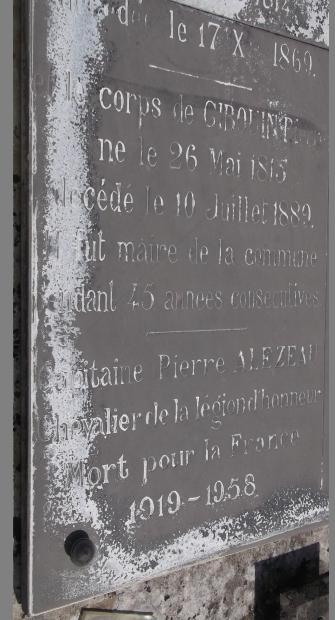 le 17 X 1869.
le corps de GIROUIN
ne le 26 Mai 1815
décédé le 10 Juillet 1889.
fut maire de la commune
pendant 45 annees consecutives
Capitaine Pierre ALEZEAU
Chevalier de la légion d'honneur
Mort pour la France
1919 - 1958